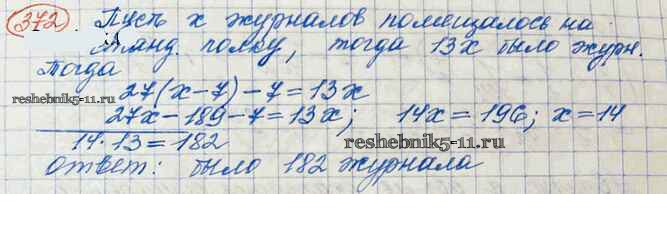 372. Пусть x журналов помещалось на
станд. полку, тогда 13x было журн.
Тогда
27(x-7)-7=13x
reshebnik5-11.ru
27x-189-7=13x; 14x=196; x=14
14·13=182
reshebnik5-11.ru
Ответ: было 182 журнала